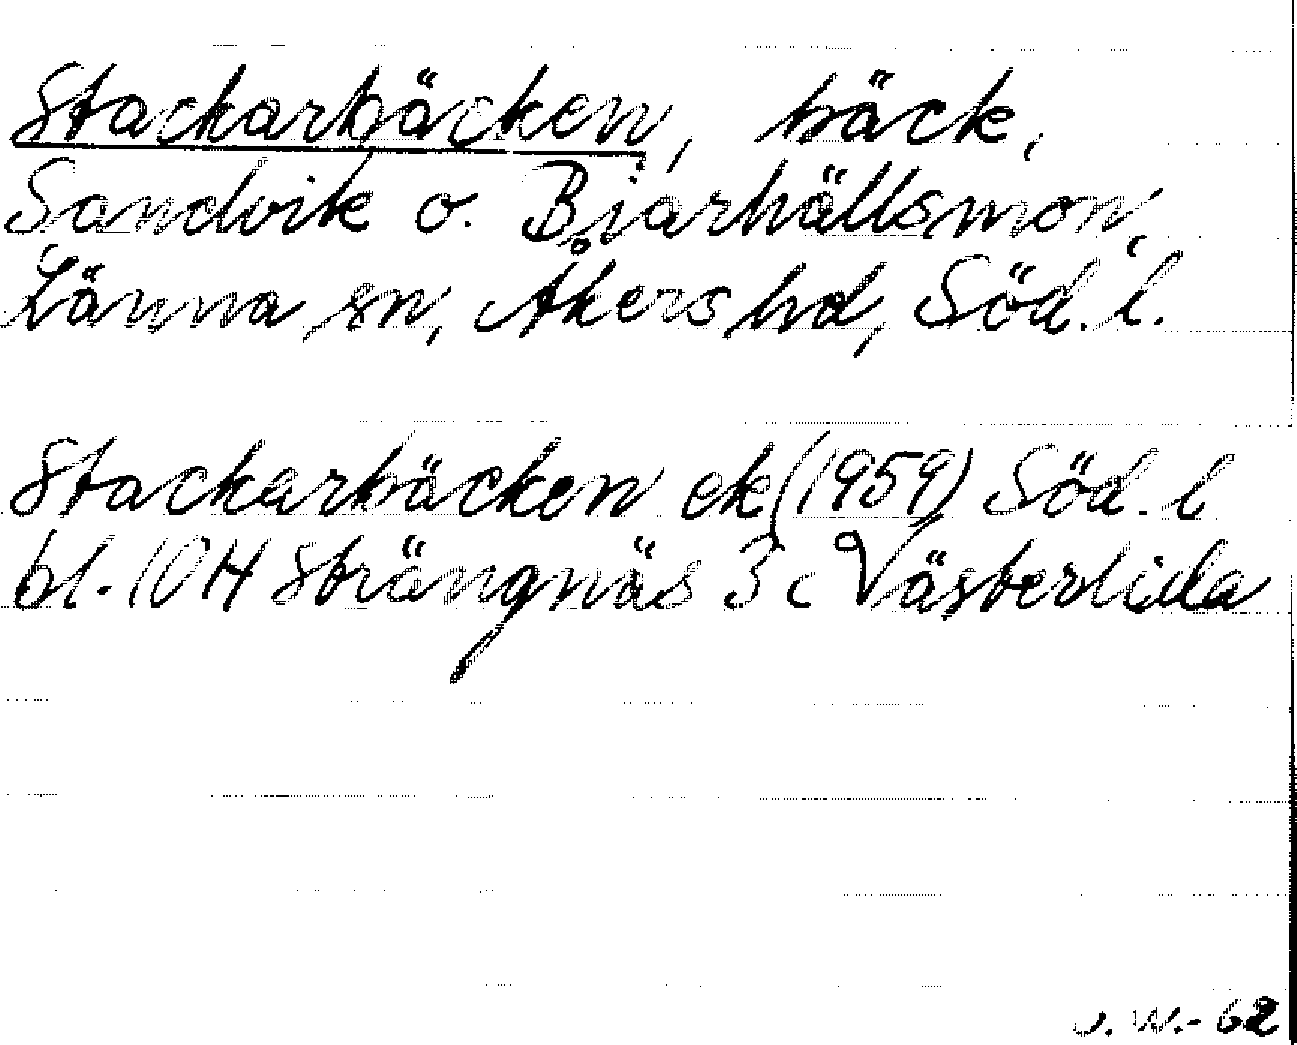 Stackarbäcken, bäck,
Sandvik o. Bjärhällsmon,
Länna sn, Åkers hd, Söd. l.
Stackarbäcken ek (1959) Söd. l
bl. 10H Strängnäs 3c Västerlida
-62